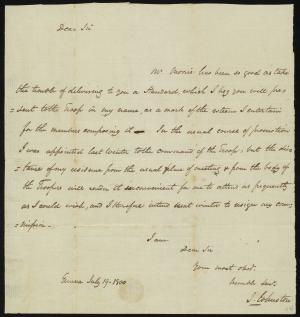 Dear Sir
Mr Morris has been so good as take
the trouble of delivering to you a Standard, which I beg you will pre-
=sent to the Troop in my name, as a mark of the esteem I entertain
for the members composing it — In the usual course of promotion
I was appointed last Winter to the command of the Troop, but the dis-
tance of my residence from the usual place of meeting & from the body of
the Troopers will render it so inconvenient for me to attend as frequently
as I could wish, and I therefore intend next winter to resign my com-
=mission.
I am
Dear Sir
Your most obed.
humble Servt.
Geneva July 19. 1800
J. Johnston